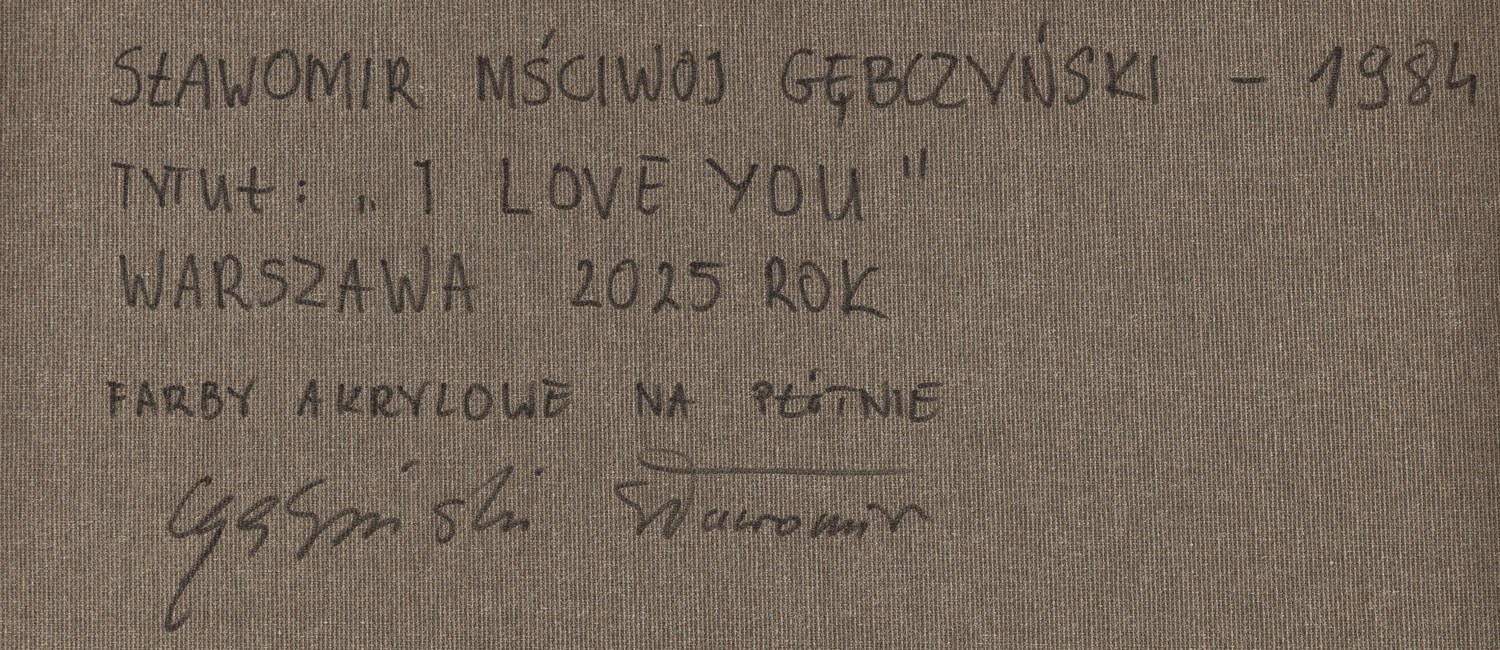 SŁAWOMIR MŚCIWOJ GĘBCZYŃSKI – 1984
TYTUŁ: „I LOVE YOU"
WARSZAWA 2025 ROK
FARBY AKRYLOWE NA PŁÓTNIE
Sławomir